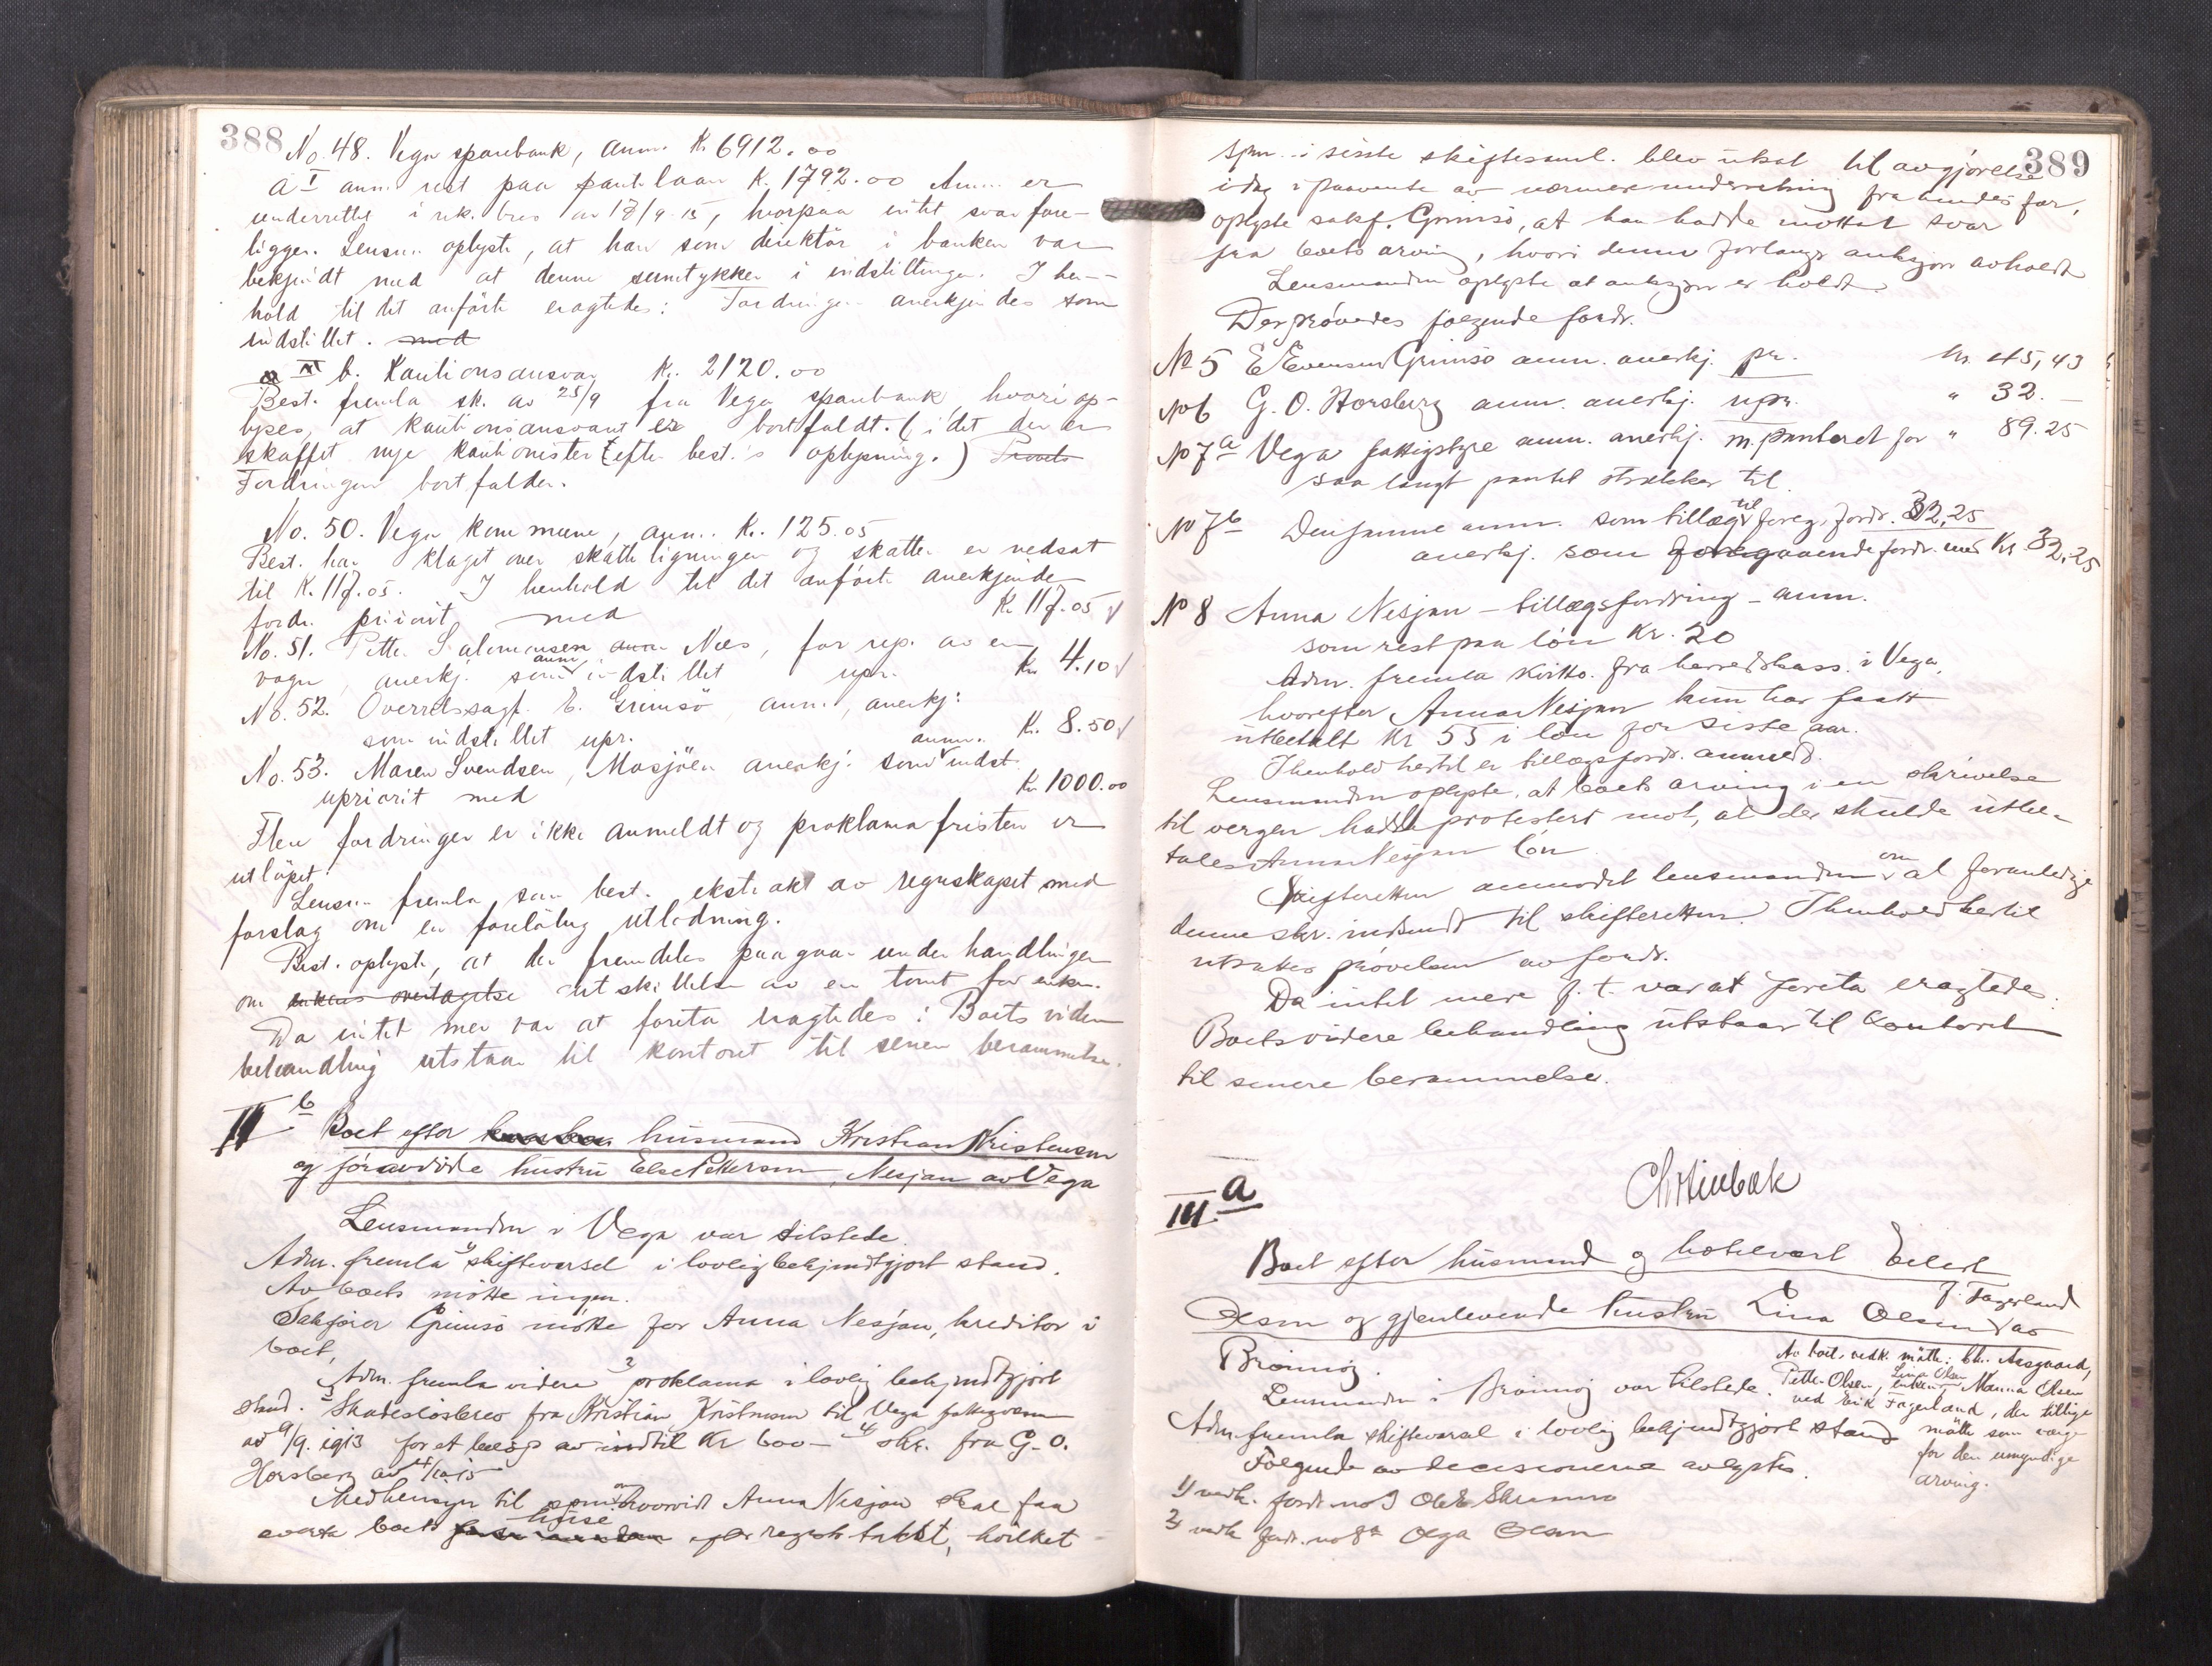 388
No. 48. Vega sparebank, anm. Kr. 6912.00
a I anm. rest paa pantelaan K. 1792.00 Anm. er
underrettet i rek. brev av 18/9-15, hvorpaa intet svar fore-
ligger. Lensm. oplyste, at han som direktör i banken var
bekjendt med at denne samtykker i indstillingen. I hen-
hold til det anförte eragtedes: Fordringen anerkjendes som
indstillet. med
b. Kautionsansvar K. 2120.00
Best. fremla sk. av 25/9 fra Vega sparebank hvori op-
lyses, at kautionsansvaret er bortfaldt. (idet der er
skaffet nye kautionister (efter best.'s oplysning.)
Fordringen bortfalder.
No. 50. Vega kommune, anm. K. 125.05
Best. har klaget over skatteligningen og skatten er nedsat
til K. 117.05. I henhold til det anförte anerkjendes
fordr. priorit. med K. 117.05
No. 51. Petter Salomonsen Nes, for rep. av en
vogn, anerkj. som anm. indstillet upr. Kr. 4.10
No. 52. Overretssagf. E. Grimsö anm., anerkj.
som indstillet upr. K. 8.50
No. 53. Maren Svendsen, Mosjöen anerkj. som anm. indst.
upriorit med Kr. 1000.00
Flere fordringer er ikke anmeldt og proklamafristen er
utlöpet.
Lensm. fremla som best. ekstrakt av regnskapet med
forslag om en foreløbig utlodning.
Best. oplyste, at der fremdeles paagaar underhandlinger
om enkens overtagelse utskillelse av en tomt for enken.
Da intet mer var at foreta eragtedes: Boets videre
behandling utstaar til kontoret til senere berammelse.
II b Boet efter husmand Kristian Kristensen
og föravdöde hustru Else Pettersen, Nesjan av Vega
Lensmanden i Vega var tilstede.
Adm. fremla 1) skiftevarsel i lovlig bekjendtgjort stand.
Av boets mötte ingen.
Sakförer Grimsö mötte for Anna Nesjan, kreditor i
boet.
Adm. fremla videre 2) proklama i lovlig bekjendtgjort
stand. 3) Skadeslösbrev fra Kristian Kristensen til Vega fattigvæsen
av 9/9. 1913 for et belöp av indtil Kr 600 - 4) skr. fra G. O.
Horsberg av 4/10-15
Med hensyn til spm. om hvorvidt Anna Nesjan skal faa
overta boets huse efter registr. takst, hvilket
389
spm. i sisste skiftesaml. blev utsat til avgjörelse
idag i paavente av nærmere underretning fra hendes far,
oplyste sakf. Grimsö, at han hadde mottat svar
fra boets arving, hvori denne forlanger auksjon avholdt
Lensmanden oplyste at auksjon er holdt.
Der prövedes fölgende fordr.
No 5 E Evensen Grimsö anm. anerkj. pr. Kr. 45,43
No 6 G. O. Horsberg anm. anerkj. upr. " 32.—
No 7 a Vega fattigstyre anm. anerkj. m. panteret for " 89.25
saa langt pantet strekker til.
No 7 b Densamme anm. som tillæg til foreg. fordr. 32,25
anerkj. som foregaaende fordr. med Kr 32,25
No 8 Anna Nesjan - tillægsfordring - anm.
som rest paa lön Kr. 20
Adm. fremla kvitto. fra herredskass. i Vega,
hvorefter Anna Nesjan kun har faatt
utbetalt Kr 55 i lön for siste aar.
I henhold hertil er tillægsfordr. anmeld.
Lensmanden oplyste, at boets arving i en skrivelse
til vergen hadde protestert mot, at der skulde utbe-
tales Anna Nesjan lön
Skifteretten anmodet lensmanden om at foranledige
denne skr. indsendt til skifteretten. I henhold hertil
utsattes prövelsen av fordr.
Da intet mere f. t. var at foreta eragtedes:
Boets videre behandling utstaar til kontoret
til senere berammelse.
III a
Boet efter husmand og hotelvert Eilert
Olsen og gjenlevende hustru Lina Olsen f. Fagerland av
Brönnöy.
Lensmanden i Brönnöy var tilstede. Av boet. vedk. mötte: Chr. Aasgaard,
Petter Olsen, enken Lina Olsen, Manna Olsen
ved Erik Fagerland, der tillige
mötte som verge
for den umyndige
arving.
Adm fremla skiftevarsel i lovlig bekjendtgjort stand
Fölgende av decisionerne avlystes.
1) vedk. fordr. no 9
2) vedk fordr. no 8 a Olga Olsen